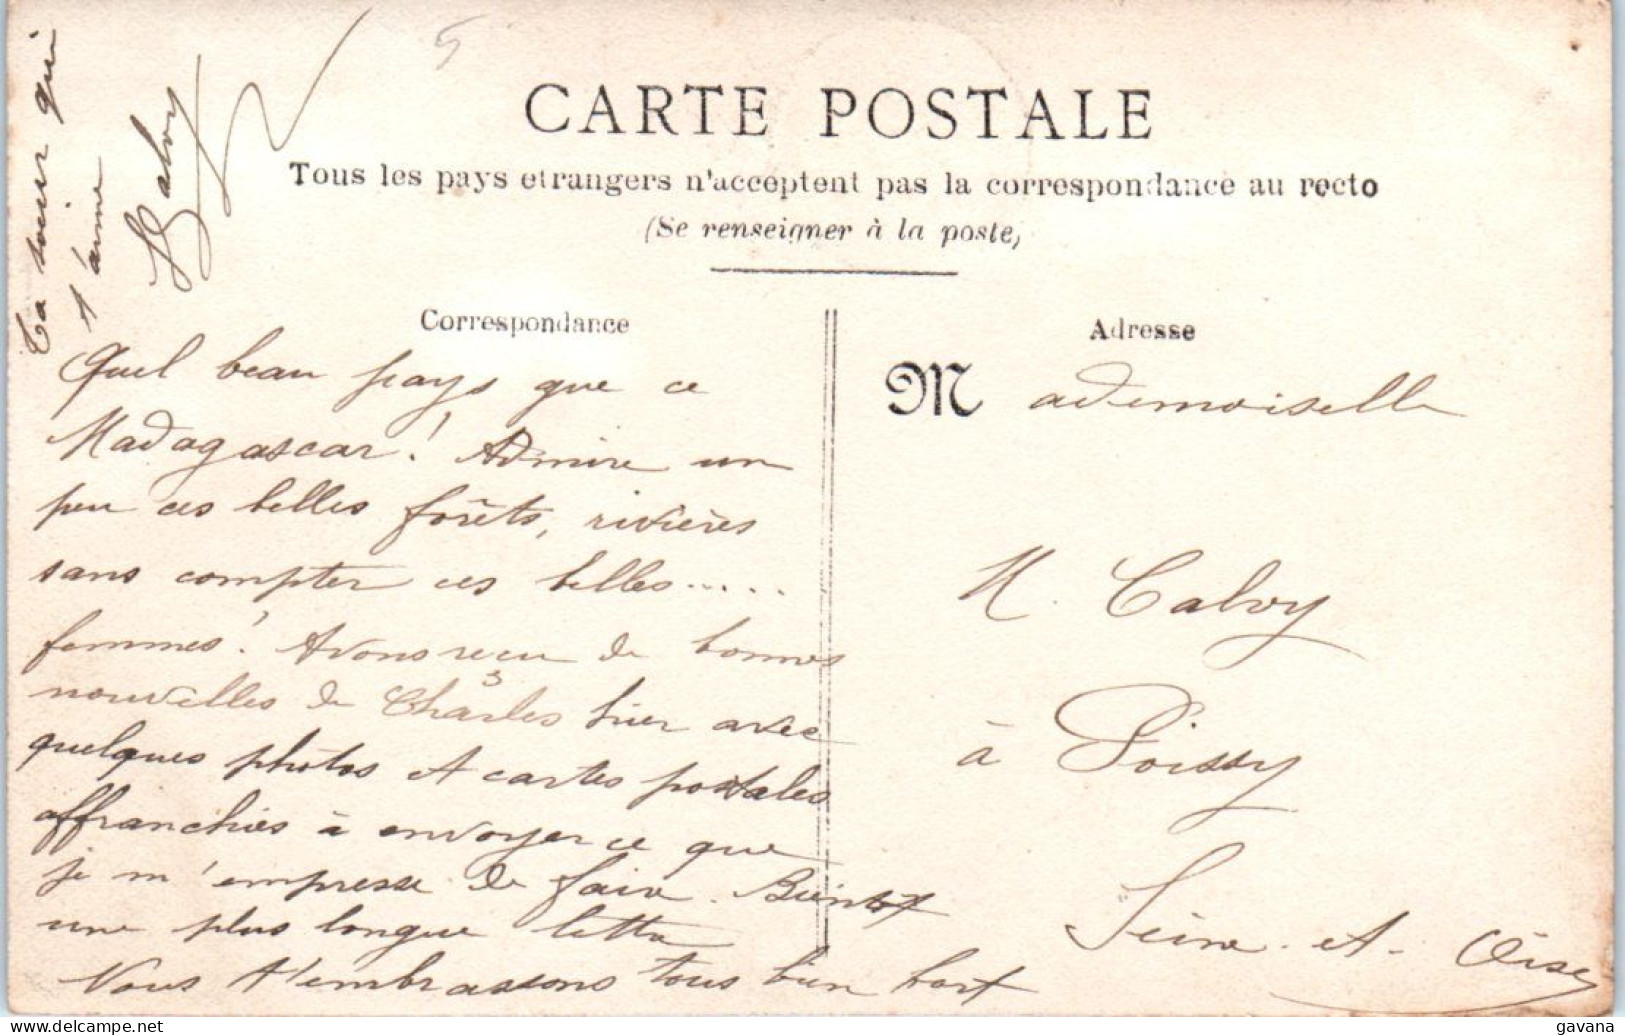 CARTE POSTALE
Tous les pays etrangers n'acceptent pas la correspondance au recto
(Se renseigner à la poste)
Correspondance
Quel beau pays que ce
Madagascar! Admire un
peu ces belles forêts, rivières
sans compter ces belles.....
femmes! Avons reçu de bonnes
nouvelles de Charles hier avec
quelques photos et cartes postales
affranchies à envoyer ce que
je m'empresse de faire. Bientôt
une plus longue lettre
Nous t'embrassons tous bien fort
Ta soeur qui
t'aime
Calvy
Adresse
M ademoiselle
M. Calvy
à Poissy
Seine-et-Oise
gavana